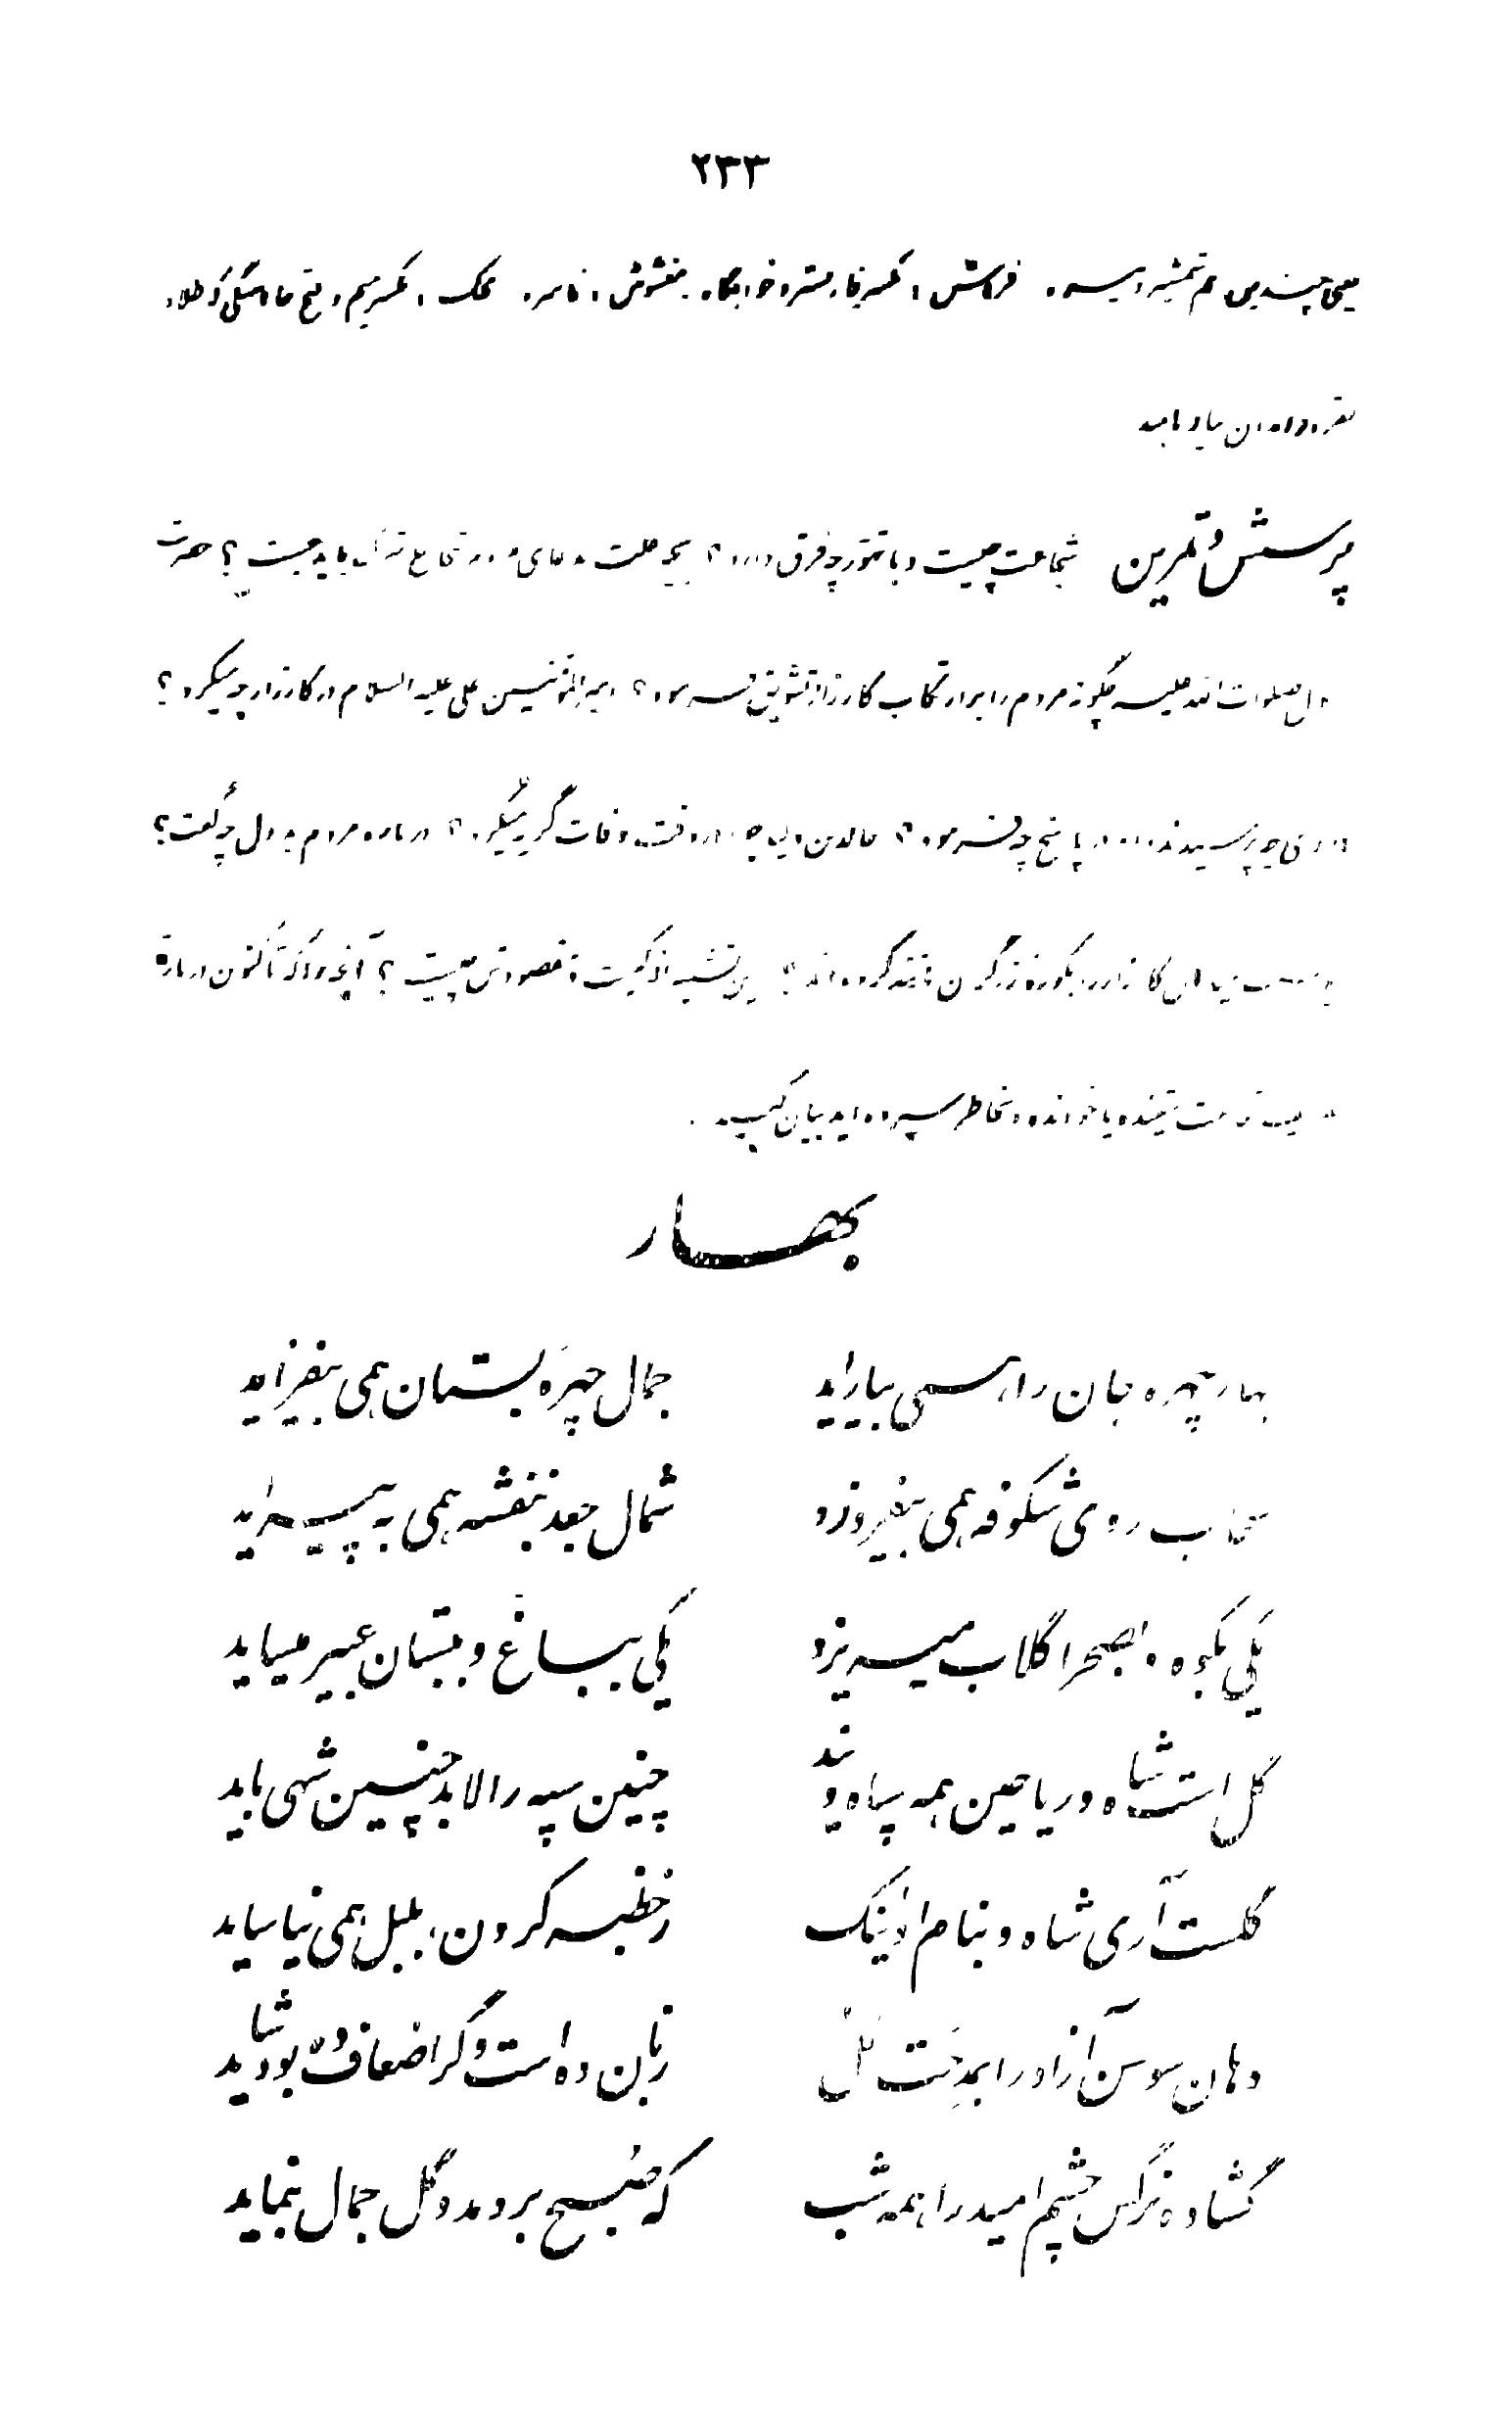 ۲۳۳
فراش، بکسر فاء، بستر و خوابگاه. مغشوش، ناسره. محک، بکسر میم و فتح حاء سنگی که طلا و
نقره را به آن بیازمایند
پرسش و تمرین شجاعت چیست و با تهور چه فرق دارد؟ بچه علت در جای باید جست؟ حضرت
صلوات الله علیه چگونه مردم را بر ارتکاب کارزار تشویق میفرمود؟ امیرالمؤمنین علی علیه السلام در کارزار چه میکرد؟
از وی چه پرسیدند در پاسخ چه فرمود؟ خالد بن ولید چرا در وقت وفات گریه میکرد؟ درباره مردم بددل چه گفت؟
کارزار را بکوره زرگران مانند کرده‌اند؟ این تشبیه از کیست و مقصودش چیست؟ آنچه را که تاکنون درباره
شنیده یا خوانده و بخاطر سپرده‌اید بیان کنید.
بهار
بهار چهره جهان را همی بیاراید جمال چهرهٔ بستان همی بیفزاید
سحاب روی شکوفه همی بیفروزد شمال جعد بنفشه همی به پیراید
یکی بکوه و بصحرا گلاب میریزد یکی بباغ و ببستان عبیر میساید
گل است شاه و ریاحین همه سپاه ویند چنین سپه را لابد چنین شهی باید
گلست آری شاه و بنام او اینک ز خطبه کردن، بلبل همی نیاساید
دهان سوسن آزاد را بمدحت گل زبان ده است و گر اضعاف ده بود شاید
گشاده نرگس چشم امید را همه شب که صبح بردمد و گل جمال بنماید